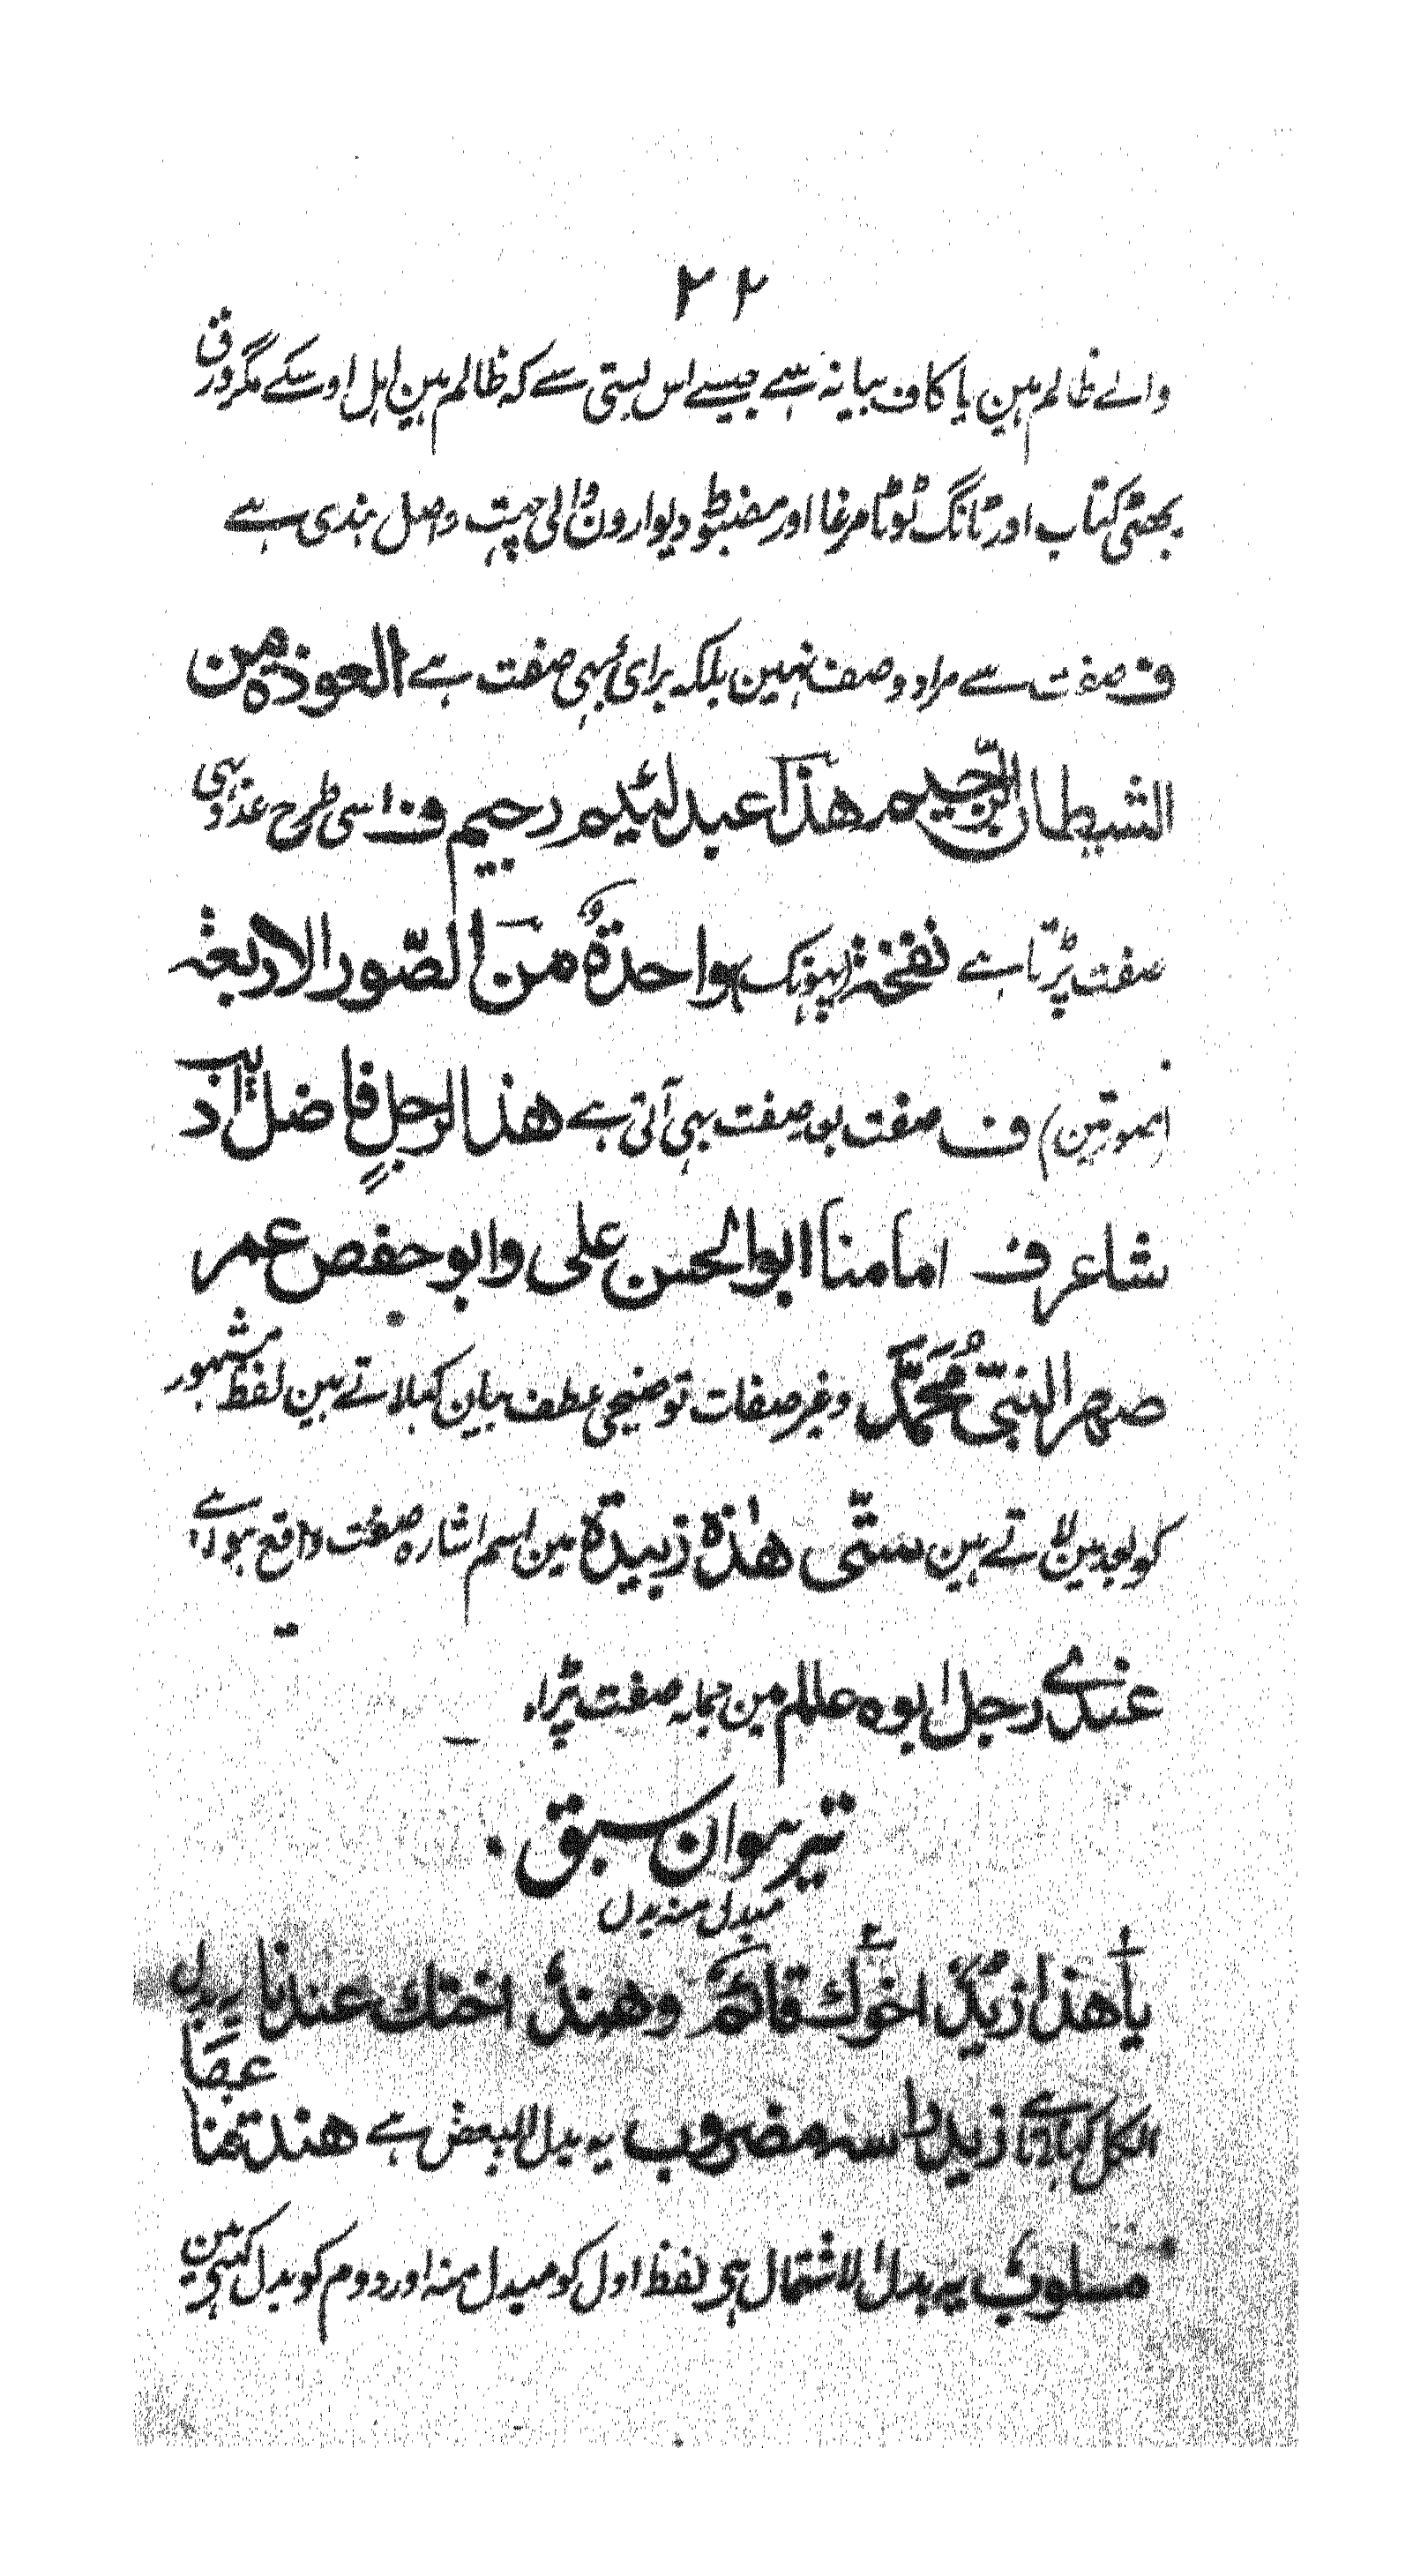 ۲۲
والے ظالم ہین یا کاف بیانہ ہے جیسے اس بستی سے کہ ظالم ہین اہل اوسکے مگر ورق
پھٹی کتاب اور ٹانگ ٹوٹا مرغا اور مضبوط دیوارون والی چہت واصل بندی ہے
ف صفت سے مراد وصف نہین بلکہ برائی بہی صفت ہے العوذ من
الشیطان الرجیم هذا عبد لئیم رحیم ف اسی طرح عذاب بہی
صفت پڑتا ہے نفخة (پہونک) واحدة من الصور الاربعہ
(صورتین) ف صفت بر صفت بہی آتی ہے هذا الرجل فاضل ادیب
شاعر ف امامنا ابوالحسن علی وابو حفص عمر
صهر النبی محمد وغیر صفات توضیحی عطف بیان کہلاتے ہین لفظ مشہور
کو بعد مین لاتے ہین ستی هذہ زبیدة مین اسم اشارہ صفت واقع ہوا ہے
عندی رجل ابوہ ظالم مین جملہ صفت پڑا
تیرہوان سبق
مبدل منہ بدل
یأ هذا زید اخوك قائم وهند اختك عندنا یہ بدل
الکل کہلاتا ہے زید راسه مضروب یہ بدل البعض ہے هند تمنا عصا
مسلوب یہ بدل الاشتمال ہی لفظ اول کو مبدل منہ اور دوم کو بدل کہتے ہین